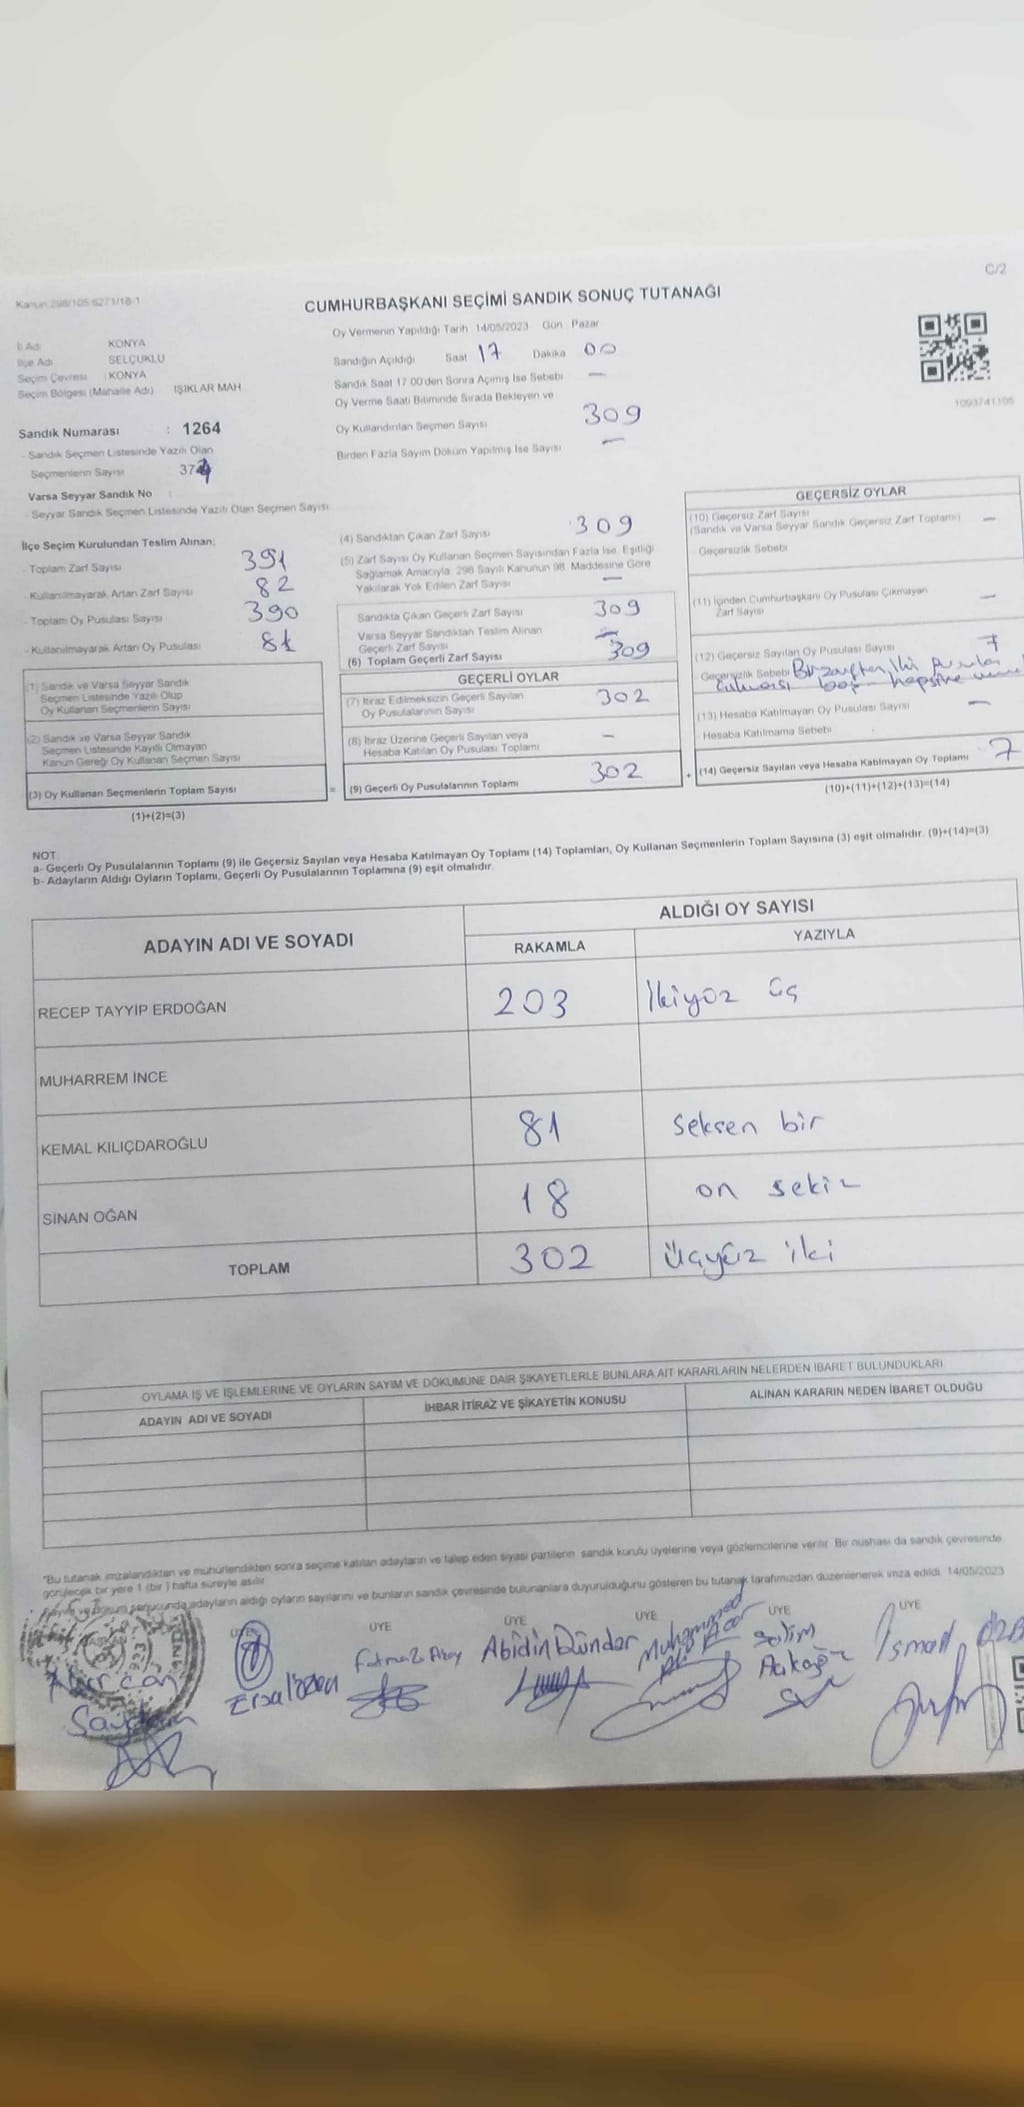 C/2
Kanun:298/105 6271/18-1
CUMHURBAŞKANI SEÇİMİ SANDIK SONUÇ TUTANAĞI
İl Adı KONYA
İlçe Adı SELÇUKLU
Seçim Çevresi : KONYA
Seçim Bölgesi (Mahalle Adı) IŞIKLAR MAH
Sandık Numarası : 1264
- Sandık Seçmen Listesinde Yazılı Olan
Seçmenlerin Sayısı 37
Varsa Seyyar Sandık No :
- Seyyar Sandık Seçmen Listesinde Yazılı Olan Seçmen Sayısı
Oy Vermenin Yapıldığı Tarih 14/05/2023 Gün Pazar
Sandığın Açıldığı Saat 17 Dakika 00
Sandık Saat 17:00'den Sonra Açımış İse Sebebi —
Oy Verme Saati Bitiminde Sırada Bekleyen ve
Oy Kullandırılan Seçmen Sayısı 309
Birden Fazla Sayım Döküm Yapılmış İse Sayısı —
1093741105
İlçe Seçim Kurulundan Teslim Alınan;
- Toplam Zarf Sayısı 391
- Kullanılmayarak Artan Zarf Sayısı 82
- Toplam Oy Pusulası Sayısı 390
- Kullanılmayarak Artan Oy Pusulası 81
(1) Sandık ve Varsa Seyyar Sandık
Seçmen Listesinde Yazılı Olup
Oy Kullanan Seçmenlerin Sayısı
(2) Sandık ve Varsa Seyyar Sandık
Seçmen Listesinde Kayıtlı Olmayan
Kanun Gereği Oy Kullanan Seçmen Sayısı
(3) Oy Kullanan Seçmenlerin Toplam Sayısı
(1)+(2)=(3)
(4) Sandıktan Çıkan Zarf Sayısı 309
(5) Zarf Sayısı Oy Kullanan Seçmen Sayısından Fazla İse, Eşitliği
Sağlamak Amacıyla; 298 Sayılı Kanunun 98. Maddesine Göre
Yakılarak Yok Edilen Zarf Sayısı —
Sandıkta Çıkan Geçerli Zarf Sayısı 309
Varsa Seyyar Sandıktan Teslim Alınan
Geçerli Zarf Sayısı —
(6) Toplam Geçerli Zarf Sayısı 309
GEÇERLİ OYLAR
(7) İtiraz Edilmeksizin Geçerli Sayılan
Oy Pusulalarının Sayısı 302
(8) İtiraz Üzerine Geçerli Sayılan veya
Hesaba Katılan Oy Pusulası Toplamı —
= (9) Geçerli Oy Pusulalarının Toplamı 302
GEÇERSİZ OYLAR
(10) Geçersiz Zarf Sayısı
(Sandık ve Varsa Seyyar Sandık Geçersiz Zarf Toplamı) —
Geçersizlik Sebebi
(11) İçinden Cumhurbaşkanı Oy Pusulası Çıkmayan
Zarf Sayısı —
(12) Geçersiz Sayılan Oy Pusulası Sayısı 7
Geçersizlik Sebebi Bir zarftan iki pusula
çıkması boş hepsine
(13) Hesaba Katılmayan Oy Pusulası Sayısı —
- Hesaba Katılmama Sebebi
+ (14) Geçersiz Sayılan veya Hesaba Katılmayan Oy Toplamı 7
(10)+(11)+(12)+(13)=(14)
NOT
a- Geçerli Oy Pusulalarının Toplamı (9) ile Geçersiz Sayılan veya Hesaba Katılmayan Oy Toplamı (14) Toplamları, Oy Kullanan Seçmenlerin Toplam Sayısına (3) eşit olmalıdır. (9)+(14)=(3)
b- Adayların Aldığı Oyların Toplamı, Geçerli Oy Pusulalarının Toplamına (9) eşit olmalıdır.
ADAYIN ADI VE SOYADI ALDIĞI OY SAYISI
RAKAMLA YAZIYLA
RECEP TAYYİP ERDOĞAN 203 İkiyüz üç
MUHARREM İNCE
KEMAL KILIÇDAROĞLU 81 Seksen bir
SİNAN OĞAN 18 on sekiz
TOPLAM 302 Üçyüz iki
OYLAMA İŞ VE İŞLEMLERİNE VE OYLARIN SAYIM VE DÖKÜMÜNE DAİR ŞİKAYETLERLE BUNLARA AİT KARARLARIN NELERDEN İBARET BULUNDUKLARI
ADAYIN ADI VE SOYADI İHBAR İTİRAZ VE ŞİKAYETİN KONUSU ALINAN KARARIN NEDEN İBARET OLDUĞU
"Bu tutanak imzalandıktan ve mühürlendikten sonra seçime katılan adayların ve talep eden siyasi partilerin sandık kurulu üyelerine veya gözlemcilerine verilir. Bir nüshası da sandık çevresinde
görülecek bir yere 1 (bir) hafta süreyle asılır.
Sayım ve döküm sonucunda adayların aldığı oyların sayılarını ve bunların sandık çevresinde bulunanlara duyurulduğunu gösteren bu tutanak tarafımızdan düzenlenerek imza edildi. 14/05/2023
ÜYE ÜYE ÜYE ÜYE ÜYE
Abidin Dündar Muhammed Selim İsmail